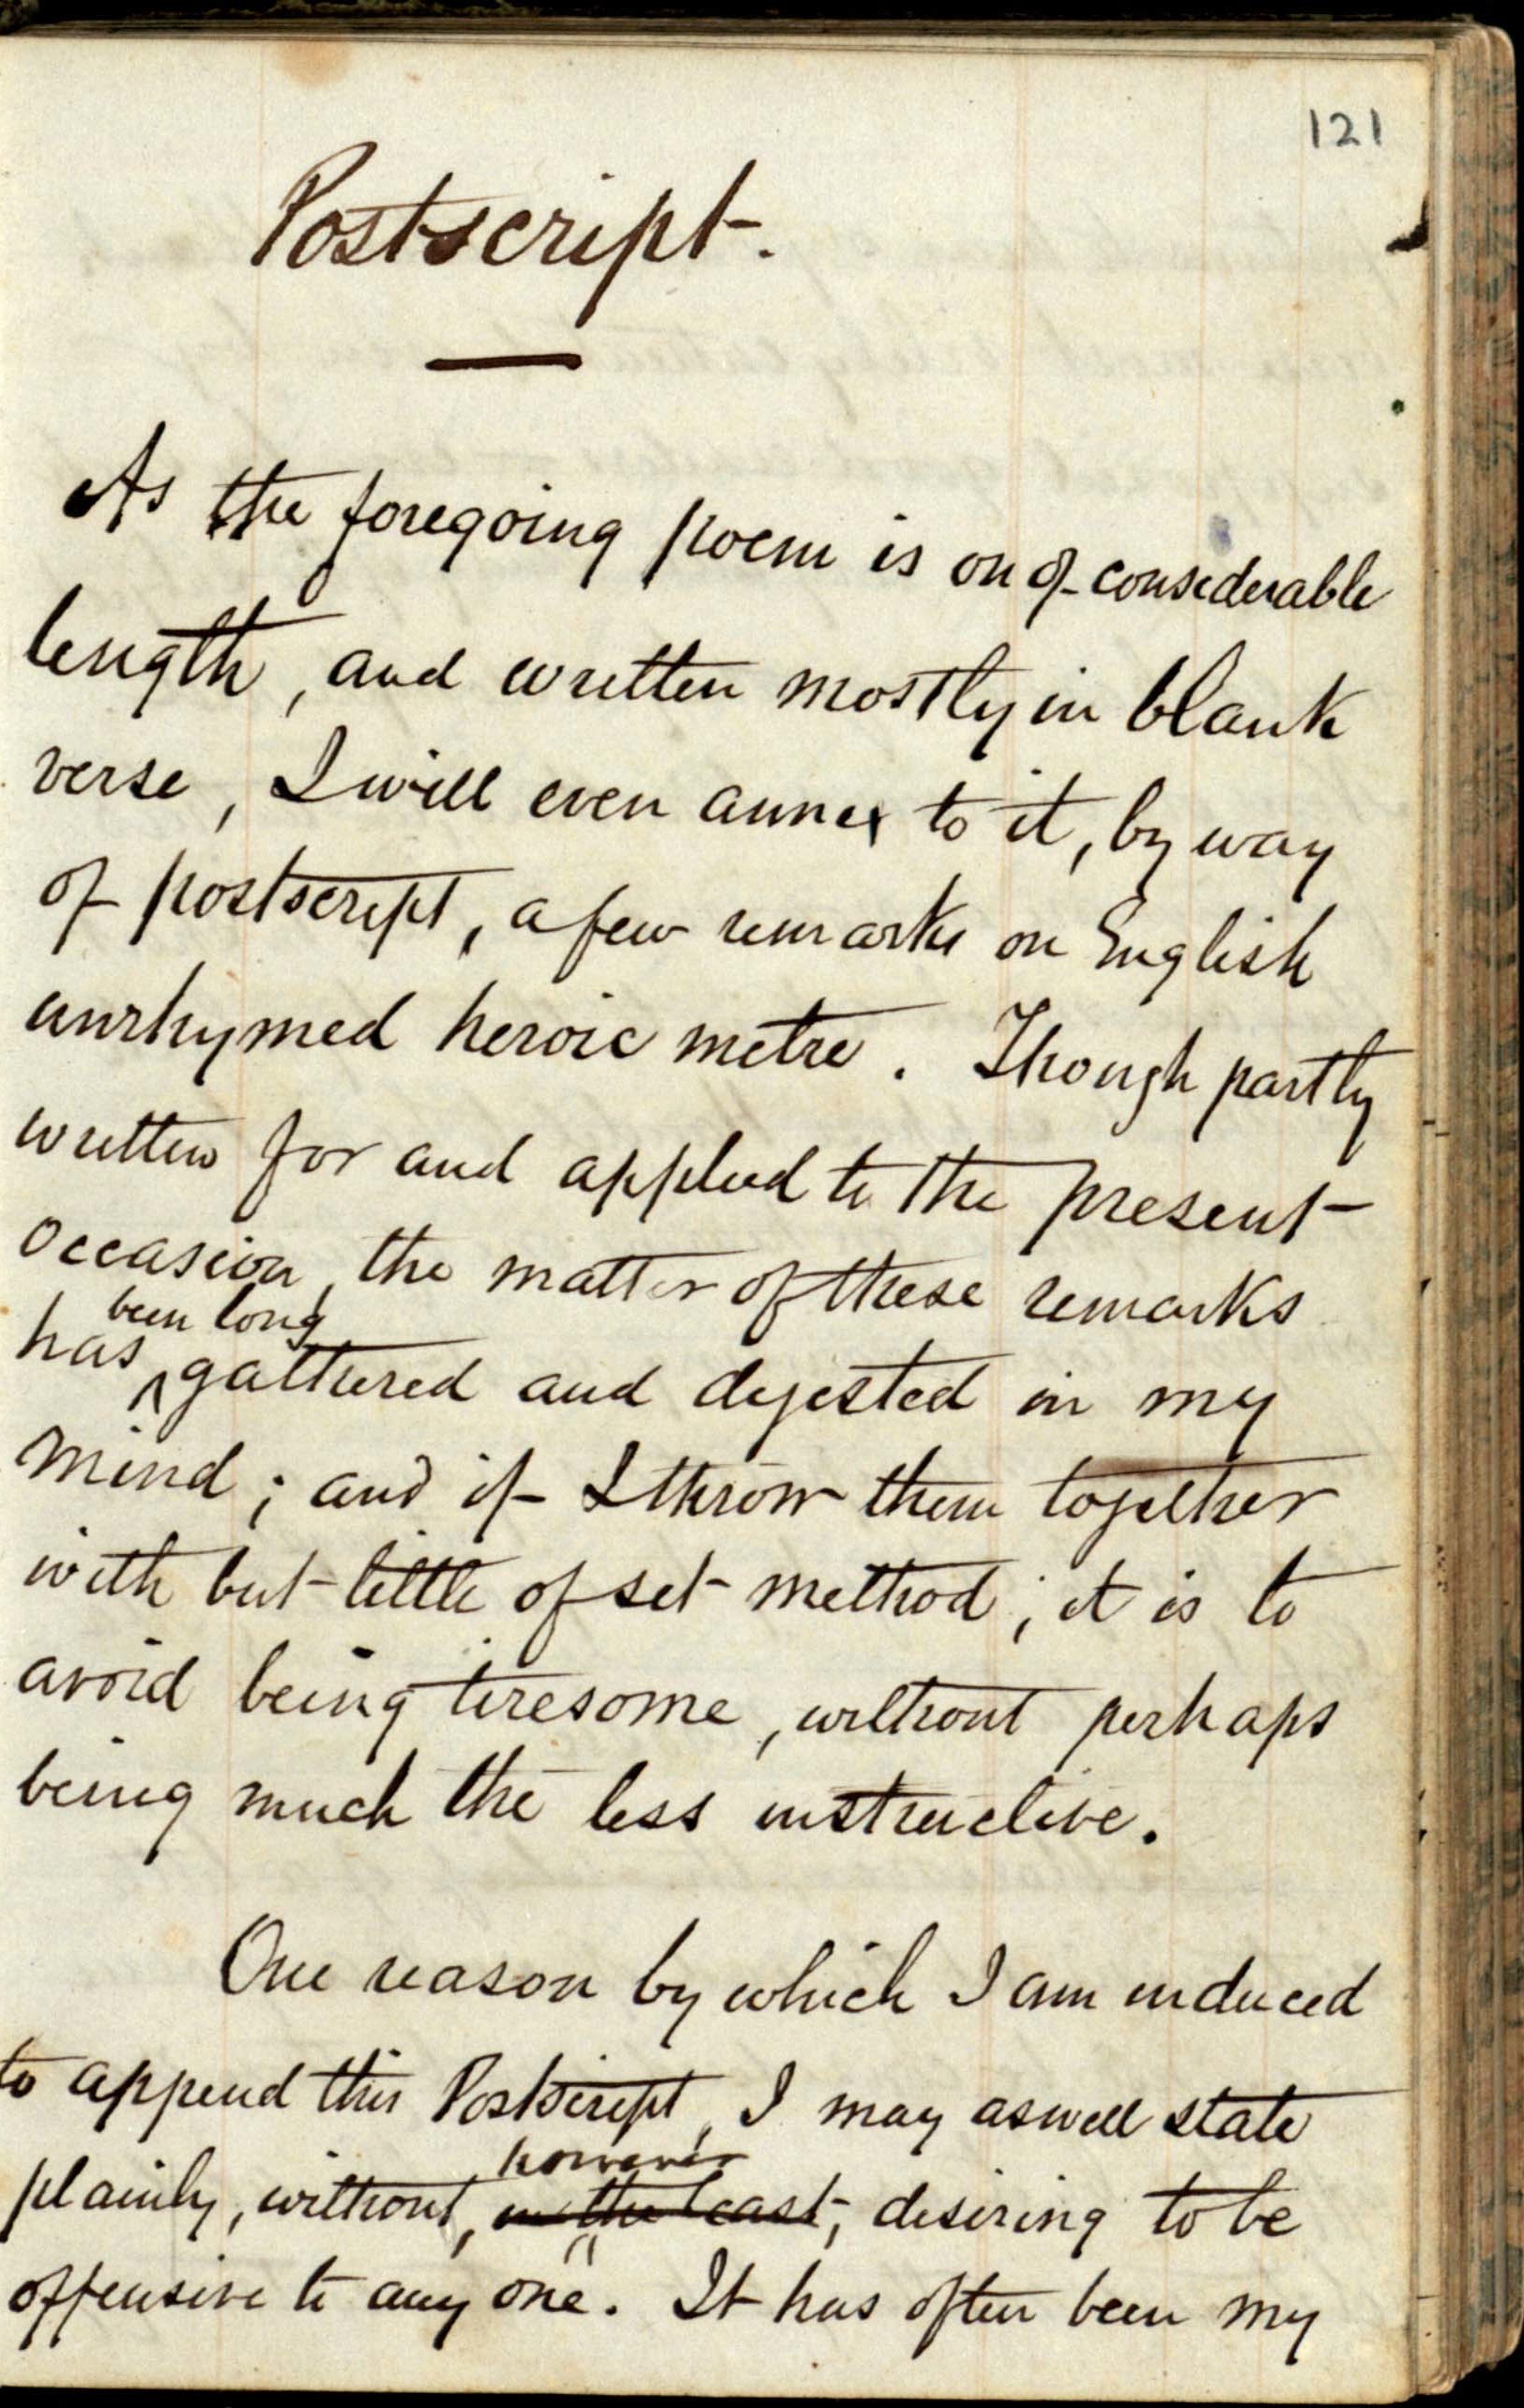 121
Postscript.
As the foregoing poem is on of considerable
length, and written mostly in blank
verse, I will even annex to it, by way
of postscript, a few remarks on English
unrhymed heroic metre. Though partly
written for and applied to the present
occasion, the matter of these remarks
been long
has gathered and digested in my
mind; and if I throw them together
with but little of set method; it is to
avoid being tiresome, without perhaps
being much the less instructive.
One reason by which I am induced
to append this Postscript, I may as well state
however
plainly, without, in the least, desiring to be
offensive to any one. It has often been my